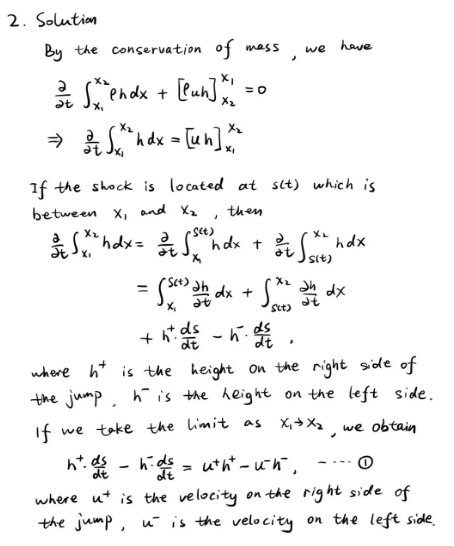 2. Solution
By the conservation of mass, we have
∂/∂t ∫_{x₁}^{x₂} ρhdx + [ρuh]_{x₂}^{x₁} = 0
⇒ ∂/∂t ∫_{x₁}^{x₂} hdx = [uh]_{x₁}^{x₂}
If the shock is located at s(t) which is
between x₁ and x₂, then
∂/∂t ∫_{x₁}^{x₂} hdx = ∂/∂t ∫_{x₁}^{s(t)} hdx + ∂/∂t ∫_{s(t)}^{x₂} hdx
= ∫_{x₁}^{s(t)} ∂h/∂t dx + ∫_{s(t)}^{x₂} ∂h/∂t dx
+ h⁺·ds/dt - h⁻·ds/dt ,
where h⁺ is the height on the right side of
the jump, h⁻ is the height on the left side.
If we take the limit as x₁→x₂, we obtain
h⁺·ds/dt - h⁻·ds/dt = u⁺h⁺ - u⁻h⁻, ---- ①
where u⁺ is the velocity on the right side of
the jump, u⁻ is the velocity on the left side.